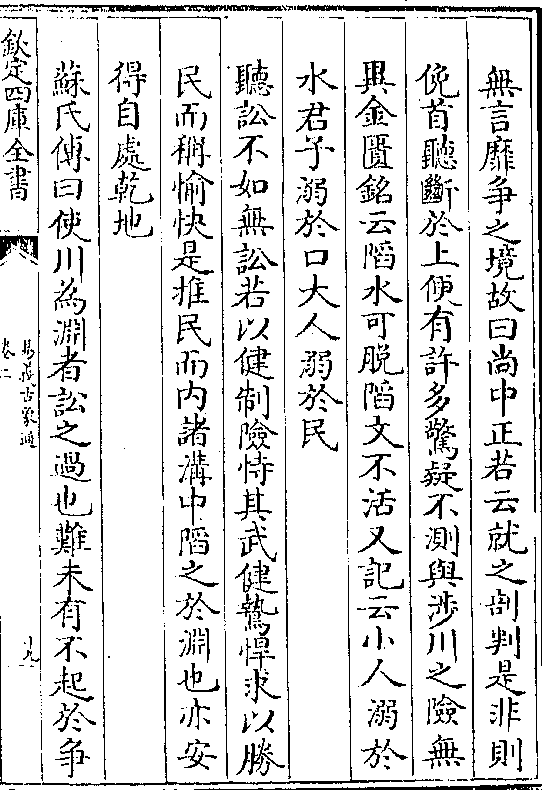 無言靡争之境故曰尚中正若云就之剖判是非則
俛首聽斷於上便有許多驚疑不測與渉川之險無
異金匱銘云䧟水可脱䧟文不活又記云小人溺於
水君子溺於口大人溺於民
聽訟不如無訟若以健制險恃其武健鷙悍求以勝
民而稱愉快是推民而内諸溝中䧟之於淵也亦安
得自處乾地
蘇氏傳曰使川為淵者訟之過也難未有不起於争
欽定四庫全書
易義古象通
卷二
十九